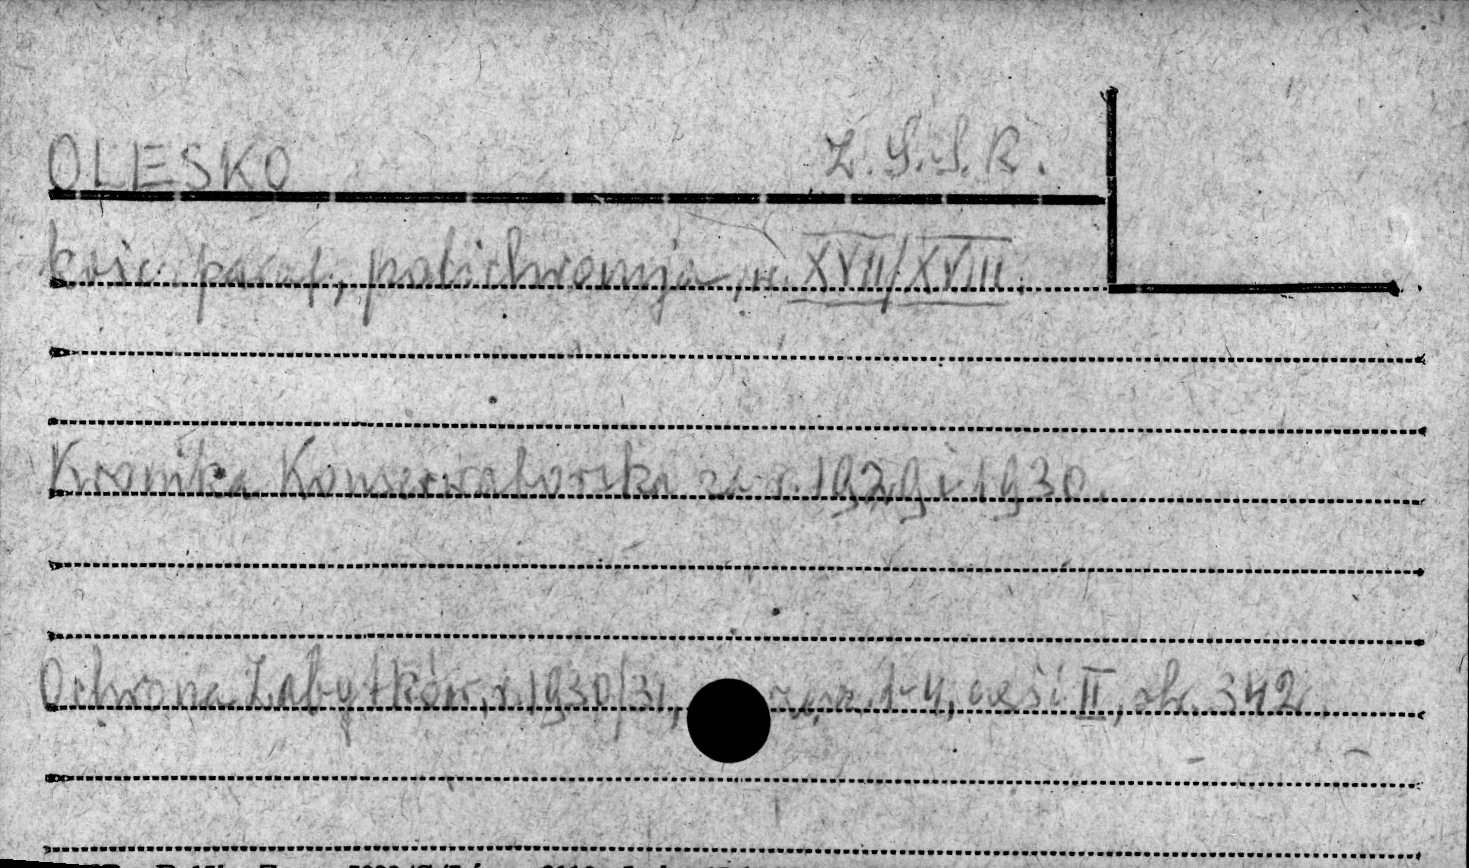 OLESKO Z.S.S.R.
kośc. paraf., polichromja, w. XVII/XVIII.
Kronika Konserwatorska za r. 1929 i 1930.
Ochrona Zabytków, r. 1930/31, zesz. 1-4, część II, str. 342.